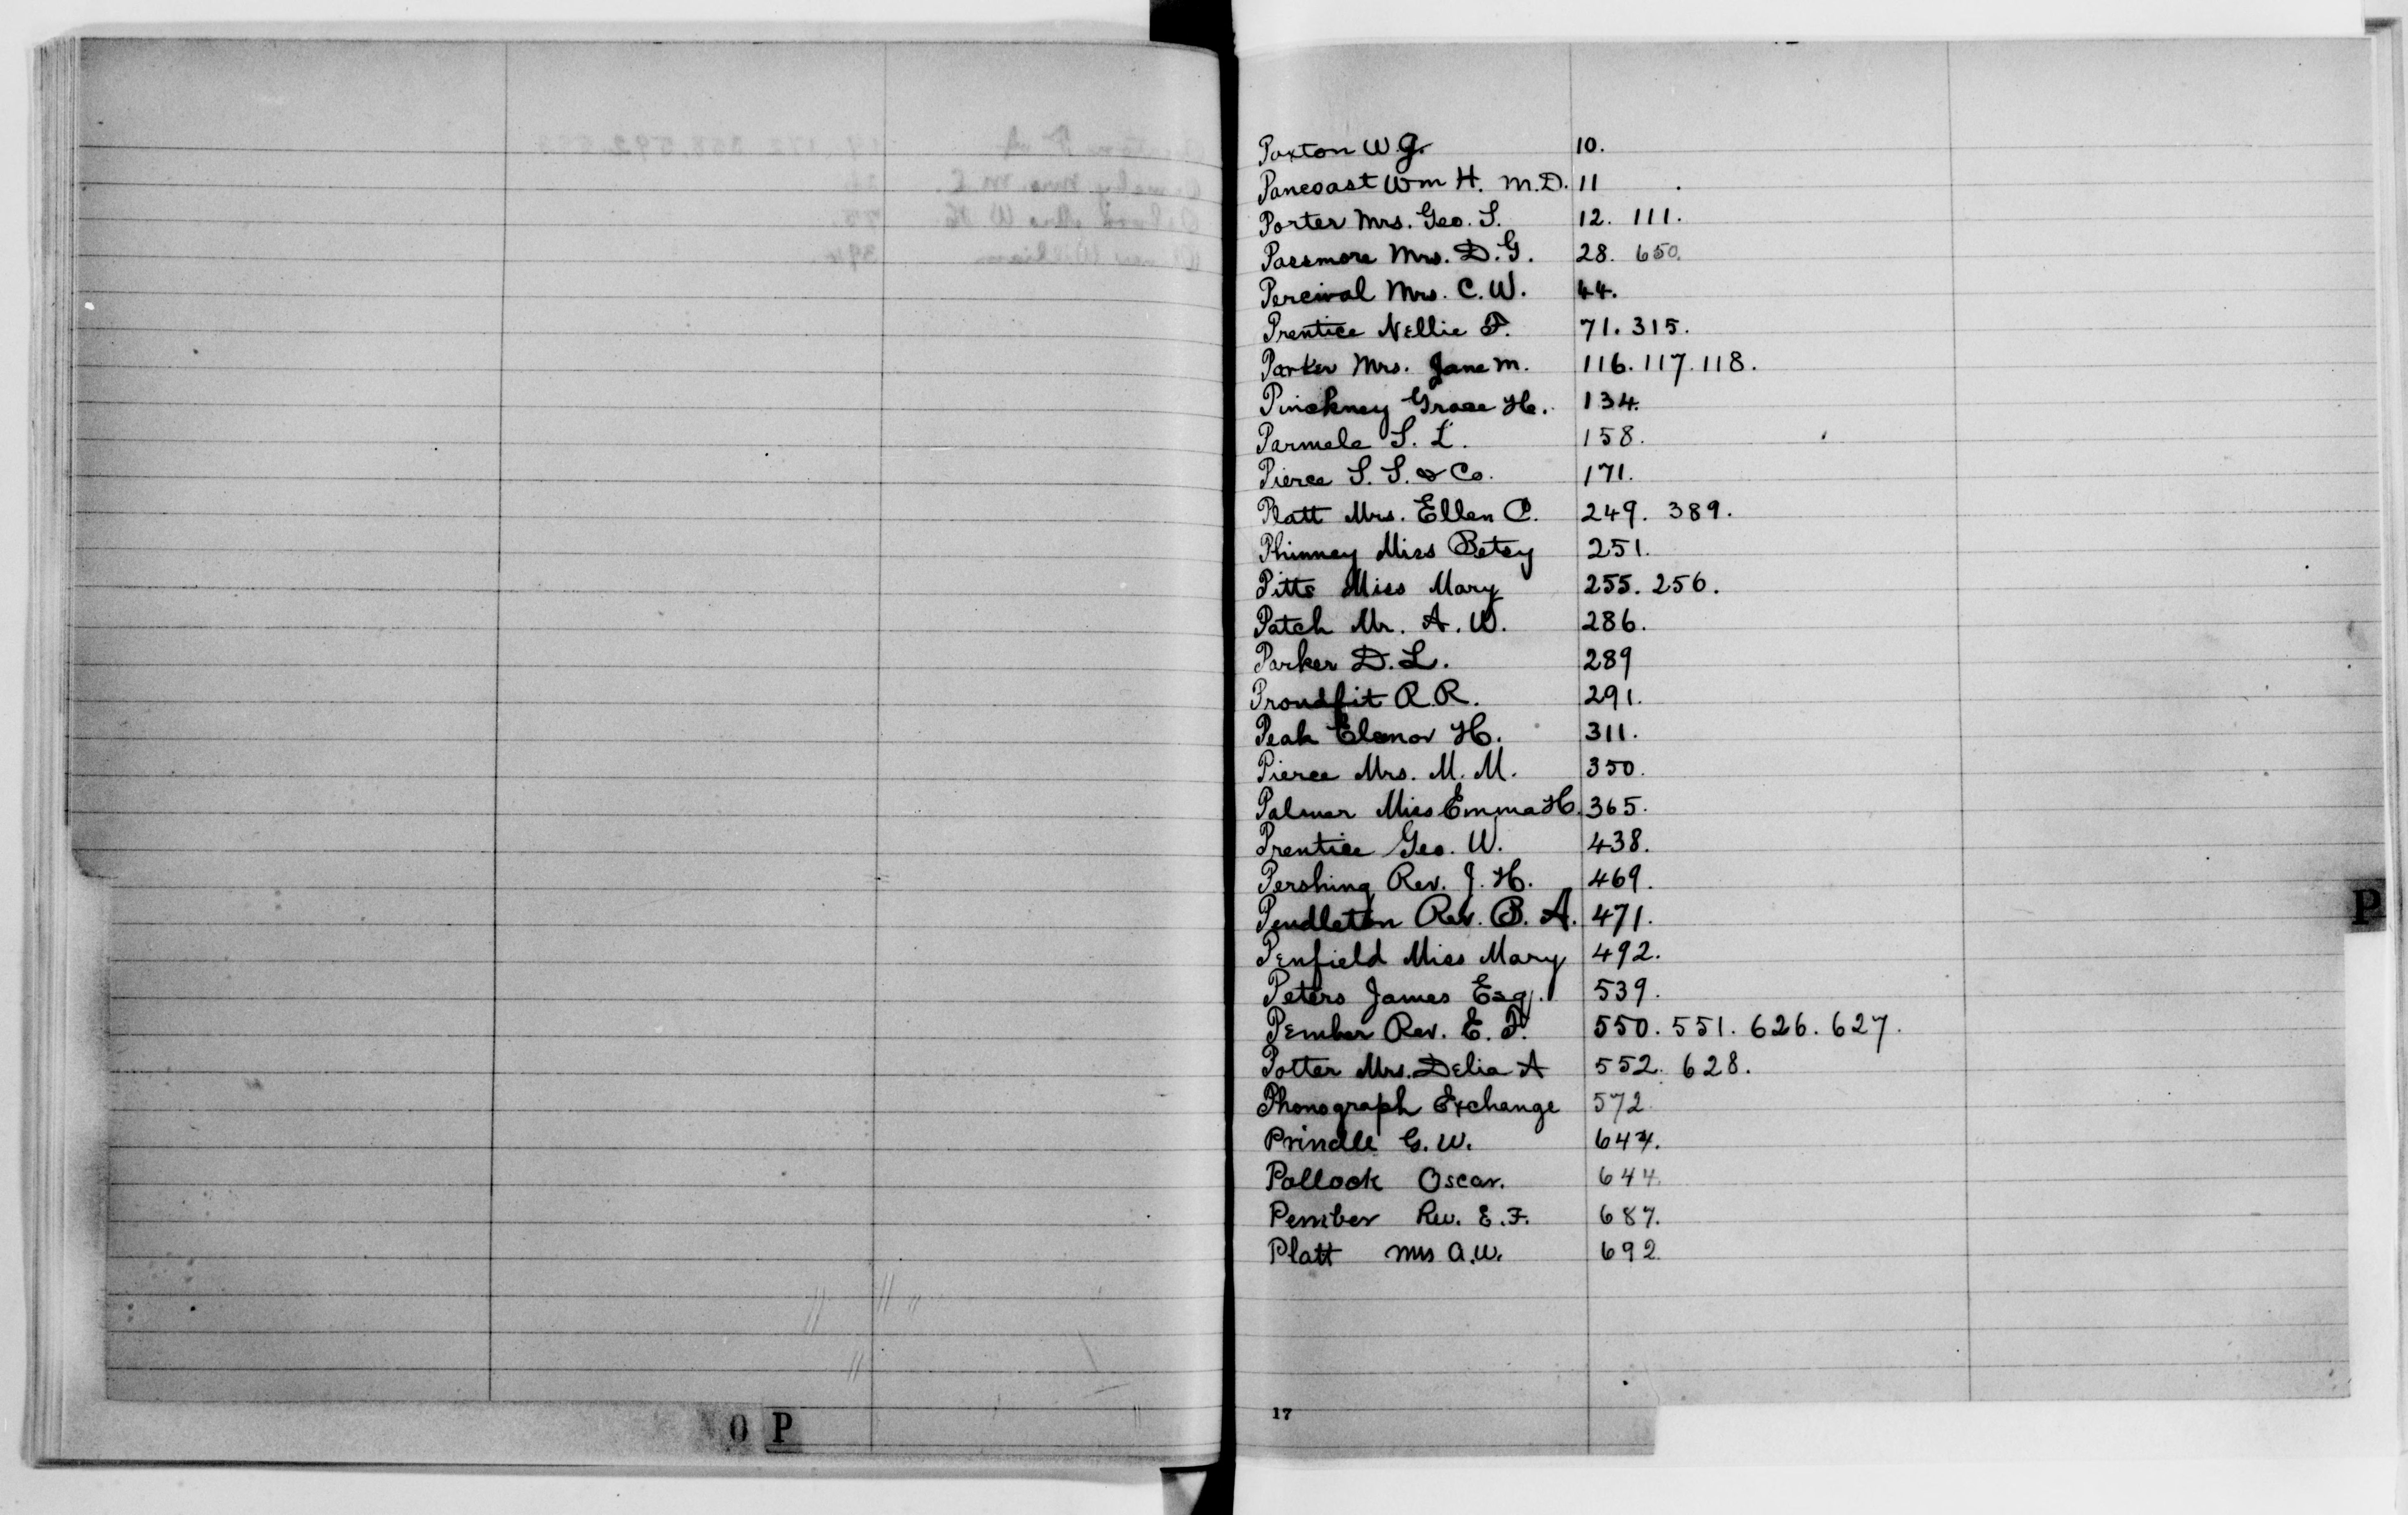 Paxton W. G. 10.
Pancoast Wm H. M.D. 11
Porter Mrs. Geo. S. 12. 111.
Passmore Mrs. D. G. 28. 650.
Percival Mrs. C. W. 44.
Prentice Nellie F. 71. 315.
Parker Mrs. Jane M. 116. 117. 118.
Pinckney Grace H. 134.
Parmele S. L. 158.
Pierce S. S. & Co. 171.
Platt Mrs. Ellen C. 249. 389.
Phinney Miss Betsy 251.
Pitts Miss Mary 255. 256.
Patch Mr. A. W. 286.
Parker D. L. 289
Proudfit R. R. 291.
Peak Elenor H. 311.
Pierce Mrs. M. M. 350.
Palmer Miss Emma H. 365.
Prentice Geo. W. 438.
Pershing Rev. J. H. 469.
Pendleton Rev. B. A. 471.
Penfield Miss Mary 492.
Peters James Esq. 539.
Pember Rev. E. F. 550. 551. 626. 627.
Potter Mrs. Delia A 552. 628.
Phonograph Exchange 572.
Prindle G. W. 644.
Pollock Oscar. 644.
Pember Rev. E. F. 687.
Platt Mrs A. W. 692.
P
17
O P